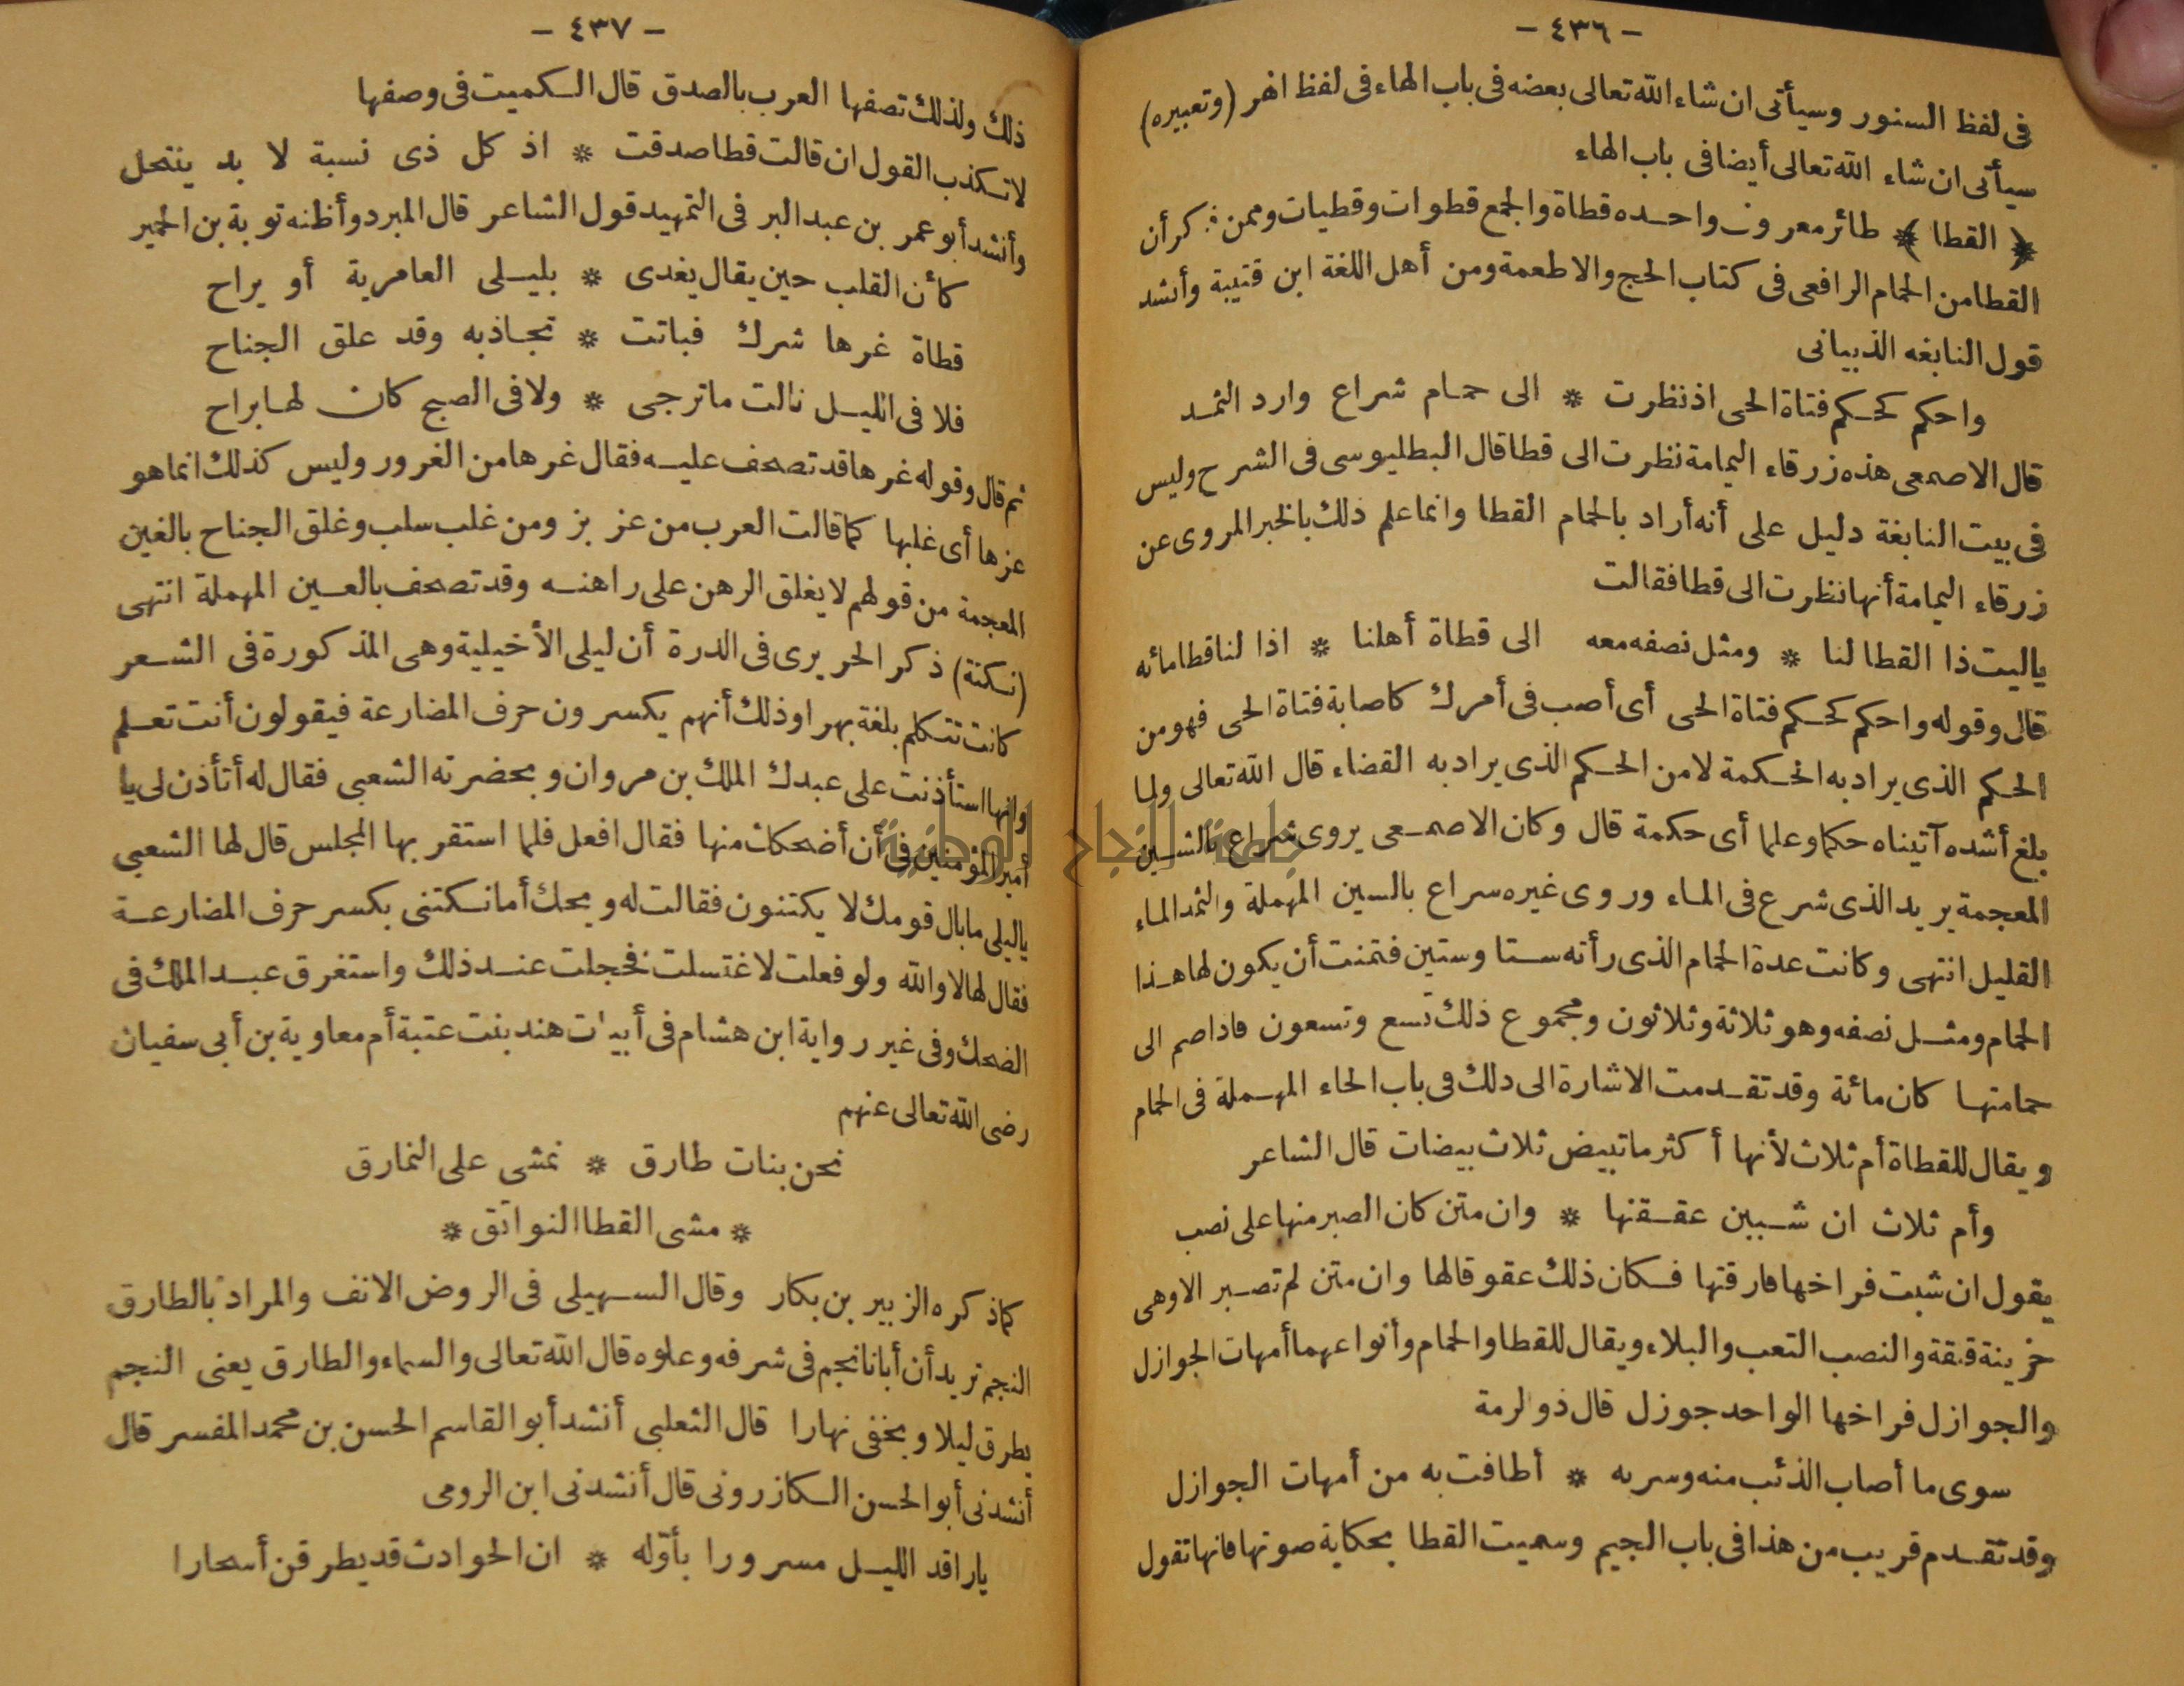 - ٤٣٦ -
فى لفظ السنور وسيأتى ان شاء الله تعالى بعضه فى باب الهاء فى لفظ الهر (وتعبيره)
سيأتى ان شاء الله تعالى أيضا فى باب الهاء
﴿ القطا ﴾ طائر معروف واحده قطاة والجمع قطوات وقطيات وممن ذكر أن
القطا من الحمام الرافعى فى كتاب الحج والاطعمة ومن أهل اللغة ابن قتيبة وأنشد
قول النابغه الذبيانى
واحكم كحكم فتاة الحى اذ نظرت * الى حمام شراع وارد الثمد
قال الاصمعى هذه زرقاء اليمامة نظرت الى قطا قال البطليوسى فى الشرح وليس
فى بيت النابغة دليل على أنه أراد بالحمام القطا وانما علم ذلك بالخبر المروى عن
زرقاء اليمامة أنها نظرت الى قطا فقالت
ياليت ذا القطا لنا * ومثل نصفه معه الى قطاة أهلنا * اذا لنا قطا مائه
قال وقوله واحكم كحكم فتاة الحى أى أصب فى أمرك كاصابة فتاة الحى فهو من
الحكم الذى يراد به الحكمة لا من الحكم الذى يراد به القضاء قال الله تعالى ولما
بلغ أشده آتيناه حكما وعلما أى حكمة قال وكان الاصمعى يروى شراع بالشين
المعجمة يريد الذى شرع فى الماء وروى غيره سراع بالسين المهملة والثمد الماء
القليل انتهى وكانت عدة الحمام الذى رأته ستا وستين فتمنت أن يكون لها هذا
الحمام ومثل نصفه وهو ثلاثة وثلاثون ومجموع ذلك تسع وتسعون فاذا ضم الى
حمامتها كان مائة وقد تقدمت الاشارة الى ذلك فى باب الحاء المهملة فى الحمام
ويقال للقطاة أم ثلاث لأنها أكثر ما تبيض ثلاث بيضات قال الشاعر
وأم ثلاث ان شببن عققنها * وان متن كان الصبر منها على نصب
يقول ان شبت فراخها فارقتها فكان ذلك عقوقا لها وان متن لم تصبر الا وهى
حزينة قنقة والنصب التعب والبلاء ويقال للقطا والحمام وأنواعهما أمهات الجوازل
والجوازل فراخها الواحد جوزل قال ذو لرمة
سوى ما أصاب الذئب منه وسربه * أطافت به من أمهات الجوازل
وقد تقدم قريب من هذا فى باب الجيم وسميت القطا بحكاية صوتها فانها تقول
- ٤٣٧ -
ذلك ولذلك تصفها العرب بالصدق قال الكميت فى وصفها
لا تكذب القول ان قالت قطا صدقت * اذ كل ذى نسبة لا بد ينتحل
وأنشد أبو عمر بن عبد البر فى التمهيد قول الشاعر قال المبرد وأظنه توبة بن الحمير
كأن القلب حين يقال يغدى * بليلى العامرية أو يراح
قطاة غرها شرك فباتت * تجاذبه وقد علق الجناح
فلا فى الليل نالت ما ترجى * ولا فى الصبح كان لها براح
ثم قال وقوله غرها قد تصحف عليه فقال غرها من الغرور وليس كذلك انما هو
عزها أى غلبها كما قالت العرب من عز بز ومن غلب سلب وغلق الجناح بالغين
المعجمة من قولهم لا يغلق الرهن على راهنه وقد تصحف بالعين المهملة انتهى
(نكتة) ذكر الحريرى فى الدرة أن ليلى الأخيلية وهى المذكورة فى الشعر
كانت تتكلم بلغة بهرا وذلك أنهم يكسرون حرف المضارعة فيقولون أنت تعلم
وانها استأذنت على عبدك الملك بن مروان وبحضرته الشعبى فقال له أتأذن لى يا
أمير المؤمنين فى أن أضحكك منها فقال افعل فلما استقر بها المجلس قال لها الشعبى
يا ليلى ما بال قومك لا يكتنون فقالت له ويحك أما نكتنى بكسر حرف المضارعة
فقال لها لا والله ولو فعلت لاغتسلت فخجلت عند ذلك واستغرق عبد الملك فى
الضحك وفى غير رواية ابن هشام فى أبيات هند بنت عتبة أم معاوية بن أبى سفيان
رضى الله تعالى عنهم
نحن بنات طارق * نمشى على النمارق
* مشى القطا النواتق *
كما ذكره الزبير بن بكار وقال السهيلى فى الروض الانف والمراد بالطارق
النجم تريد أن أبانا نجم فى شرفه وعلوه قال الله تعالى والسماء والطارق يعنى النجم
يطرق ليلا ويخفى نهارا قال الثعلبى أنشد أبو القاسم الحسن بن محمد المفسر قال
أنشدنى أبو الحسن الكازرونى قال أنشدنى ابن الرومى
يا راقد الليل مسرورا بأوّله * ان الحوادث قد يطرقن أسحارا
جامعة النجاح الوطنية